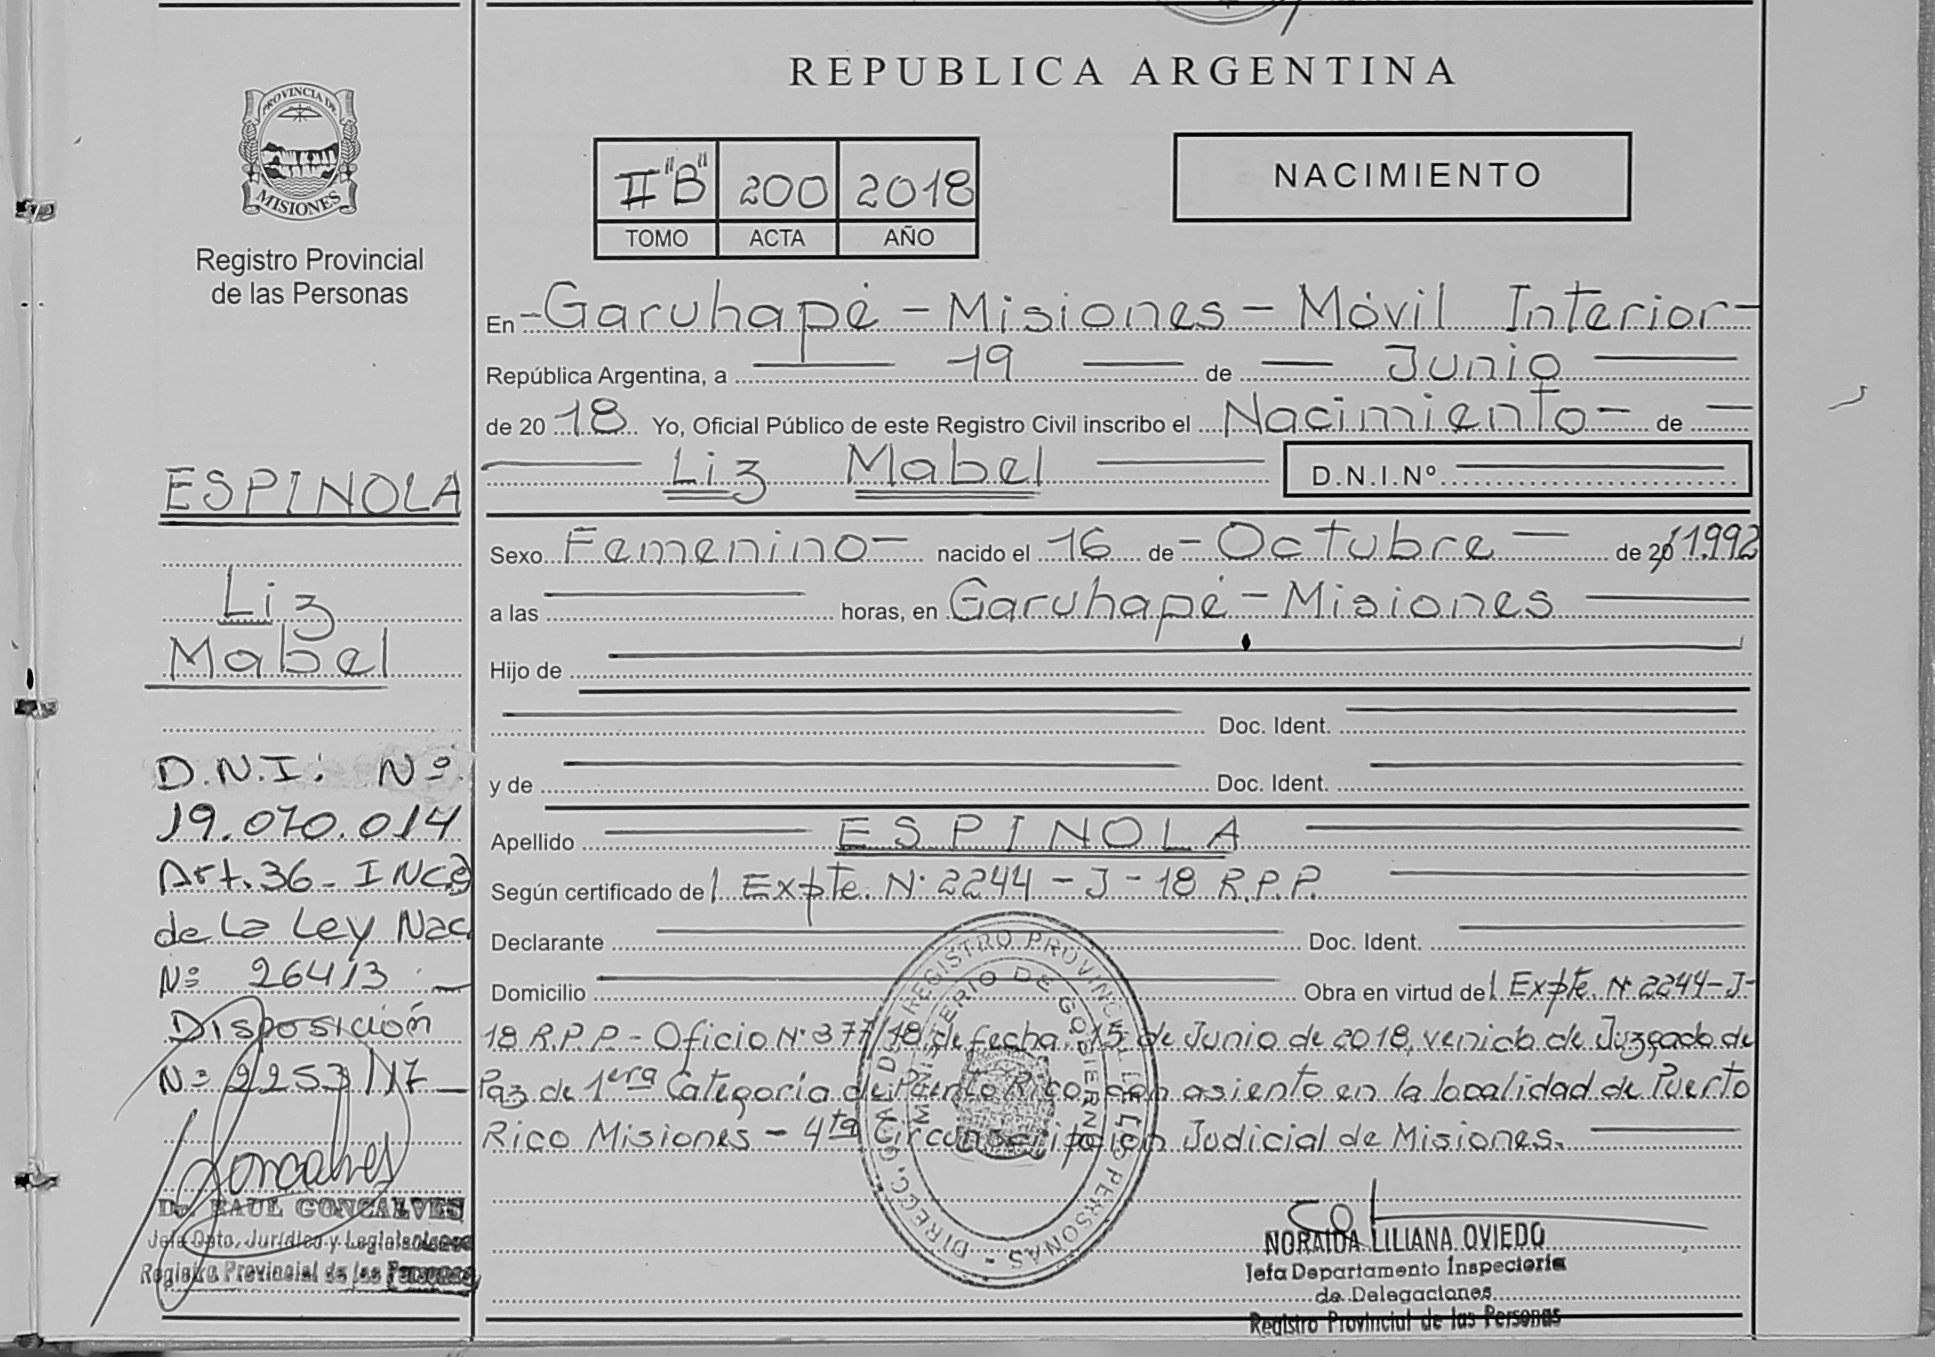 REPUBLICA ARGENTINA
PROVINCIA DE
MISIONES
Registro Provincial
de las Personas
II "B" 200 2018
TOMO ACTA AÑO
NACIMIENTO
En - Garuhapé - Misiones - Móvil Interior -
República Argentina, a 19 de Junio
de 20 18 Yo, Oficial Público de este Registro Civil inscribo el Nacimiento - de
Liz Mabel D.N.I.Nº
Sexo Femenino - nacido el 16 de - Octubre - de 20 1.992
a las horas, en Garuhapé - Misiones
Hijo de
Doc. Ident.
y de Doc. Ident.
Apellido ESPINOLA
Según certificado de l Expte. Nº 2244 - J - 18 R.P.P.
Declarante Doc. Ident.
Domicilio Obra en virtud de l Expte. Nº 2244-J-
18 R.P.P. - Oficio Nº 377/18, de fecha, 15 de Junio de 2018, venido de Juzgado de
Paz de 1era Categoría de Puerto Rico, con asiento en la localidad de Puerto
Rico Misiones - 4ta Circunscripción Judicial de Misiones.
ESPINOLA
Liz
Mabel
D.N.I: Nº
19.070.014
Art. 36 - INC
de La Ley Nac
Nº 26413 -
Disposición
Nº 2253/17 -
Goncalves
Dr. RAUL GONCALVES
Jefe Dpto. Jurídico y
Registro Provincial de las Personas
DIREC. GRAL. DEL REGISTRO PROVINCIAL DE LAS PERSONAS -
MINISTERIO DE GOBIERNO
NORAIDA LILIANA OVIEDO
Jefa Departamento Inspectoría
de Delegaciones
Registro Provincial de las Personas